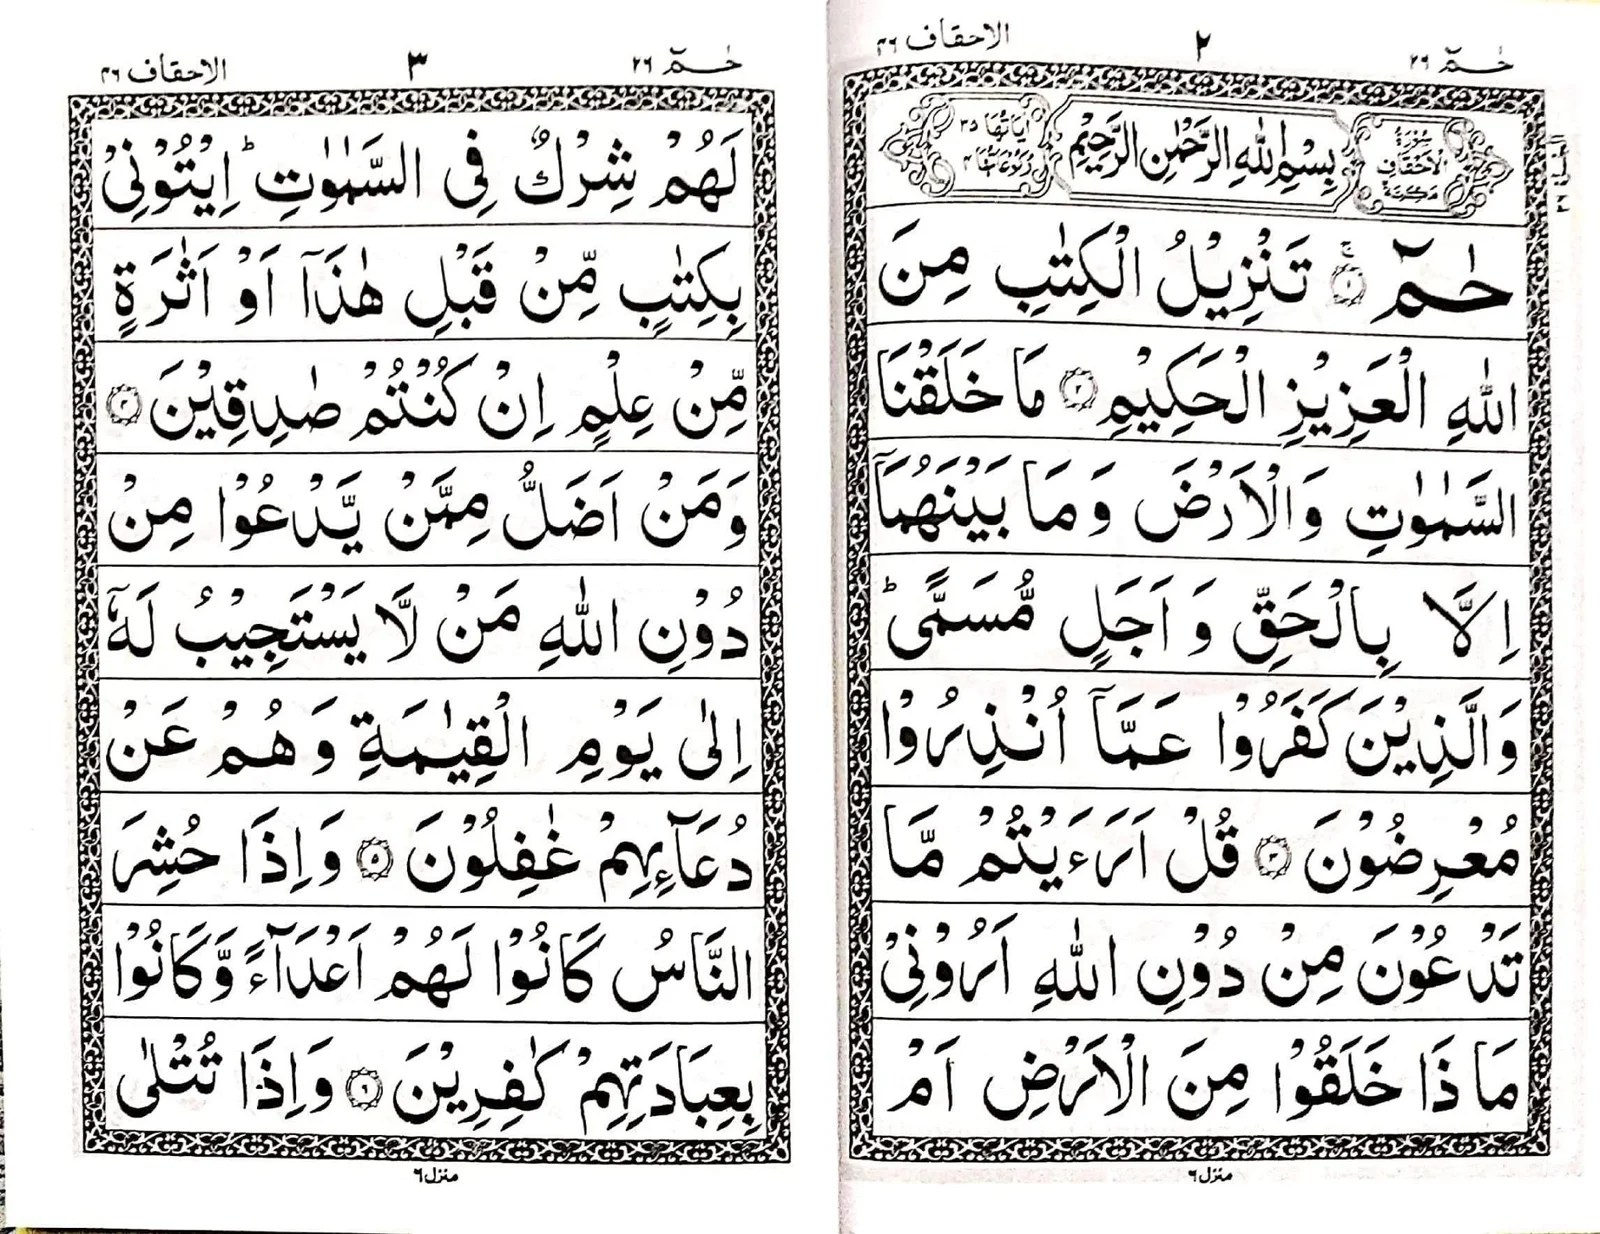 حٰمٓ ٢٦
٢
الاحقاف ٤٦
سُوْرَةُ الْاَحْقَافِ مَكِّيَّةٌ
بِسْمِ اللّٰهِ الرَّحْمٰنِ الرَّحِيْمِ
اٰيَاتُهَا ٣٥ رُكُوْعَاتُهَا ٤
حٰمٓ ۚ ﴿١﴾ تَنْزِيْلُ الْكِتٰبِ مِنَ
اللّٰهِ الْعَزِيْزِ الْحَكِيْمِ ﴿٢﴾ مَا خَلَقْنَا
السَّمٰوٰتِ وَالْاَرْضَ وَمَا بَيْنَهُمَآ
اِلَّا بِالْحَقِّ وَ اَجَلٍ مُّسَمًّى ؕ
وَالَّذِيْنَ كَفَرُوْا عَمَّآ اُنْذِرُوْا
مُعْرِضُوْنَ ﴿٣﴾ قُلْ اَرَءَيْتُمْ مَّا
تَدْعُوْنَ مِنْ دُوْنِ اللّٰهِ اَرُوْنِيْ
مَاذَا خَلَقُوْا مِنَ الْاَرْضِ اَمْ
منزل ٦
حٰمٓ ٢٦
٣
الاحقاف ٤٦
لَهُمْ شِرْكٌ فِى السَّمٰوٰتِ ؕ اِيْتُوْنِيْ
بِكِتٰبٍ مِّنْ قَبْلِ هٰذَآ اَوْ اَثٰرَةٍ
مِّنْ عِلْمٍ اِنْ كُنْتُمْ صٰدِقِيْنَ ﴿٤﴾
وَمَنْ اَضَلُّ مِمَّنْ يَّدْعُوْا مِنْ
دُوْنِ اللّٰهِ مَنْ لَّا يَسْتَجِيْبُ لَهٗٓ
اِلٰى يَوْمِ الْقِيٰمَةِ وَهُمْ عَنْ
دُعَآءِهِمْ غٰفِلُوْنَ ﴿٥﴾ وَاِذَا حُشِرَ
النَّاسُ كَانُوْا لَهُمْ اَعْدَآءً وَّكَانُوْا
بِعِبَادَتِهِمْ كٰفِرِيْنَ ﴿٦﴾ وَاِذَا تُتْلٰى
منزل ٦